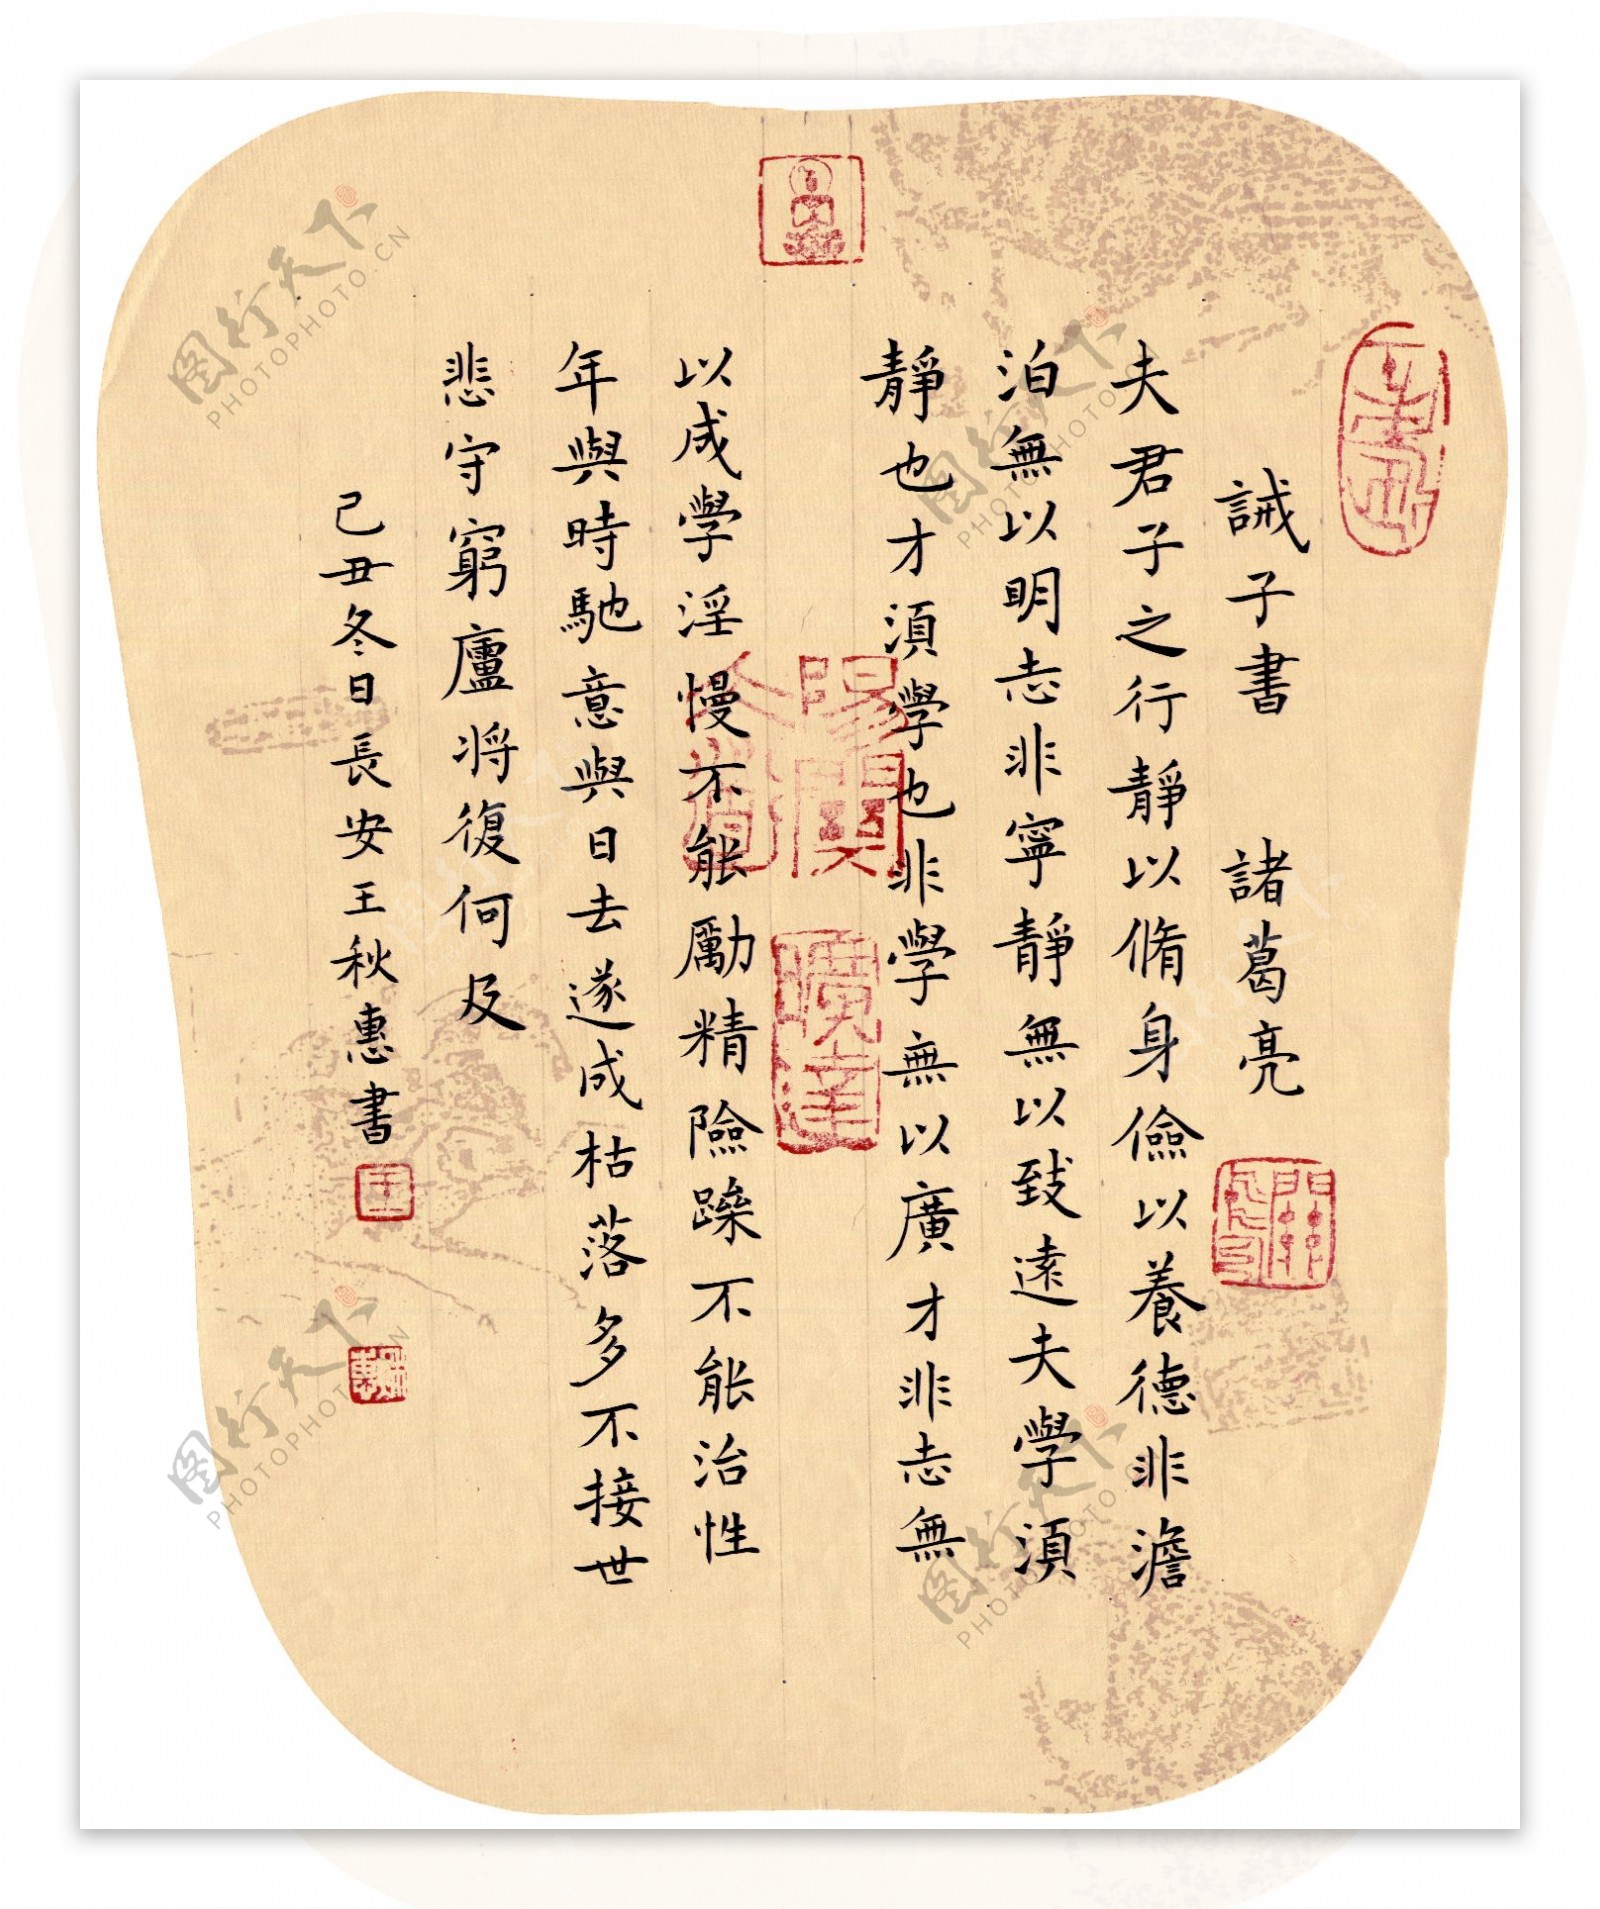 誡子書 諸葛亮
夫君子之行靜以脩身儉以養德非澹
泊無以明志非寧靜無以致遠夫學須
靜也才須學也非學無以廣才非志無
以成學淫慢不能勵精險躁不能治性
年與時馳意與日去遂成枯落多不接世
悲守窮廬將復何及
己丑冬日長安王秋惠書
王
曠達
图行天下
PHOTOPHOTO.CN
图行天下
PHOTOPHOTO.CN
图行天下
PHOTOPHOTO.CN
图行天下
PHOTOPHOTO.CN